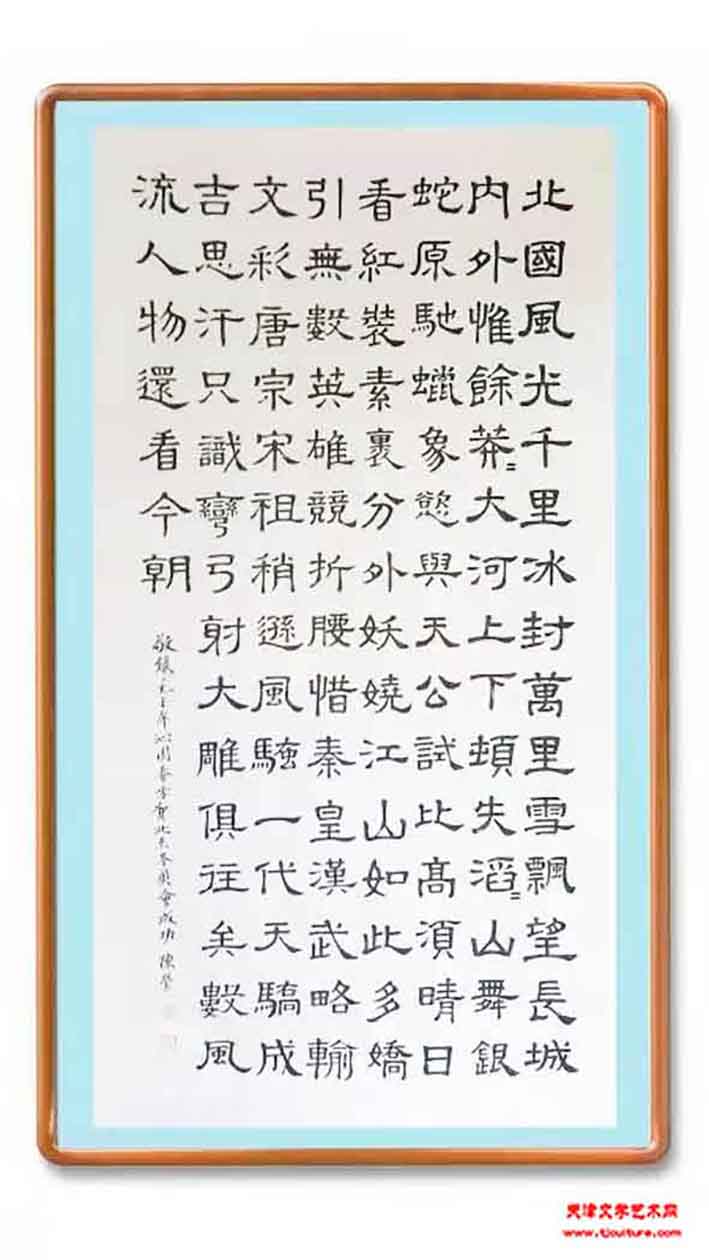 北國風光千里冰封萬里雪飄望長城
内外惟餘莽〻大河上下頓失滔〻山舞銀
蛇原馳蠟象慾與天公試比髙須晴日
看紅裝素裏分外妖嬈江山如此多嬌
引無數英雄競折腰惜秦皇漢武略輸
文彩唐宗宋祖稍遜風騷一代天驕成
吉思汗只識彎弓射大雕俱往矣數風
流人物還看今朝
敬錄毛主席沁園春雪賀北京冬奥會成功 陳
天津文学艺术网
www.tjculture.com